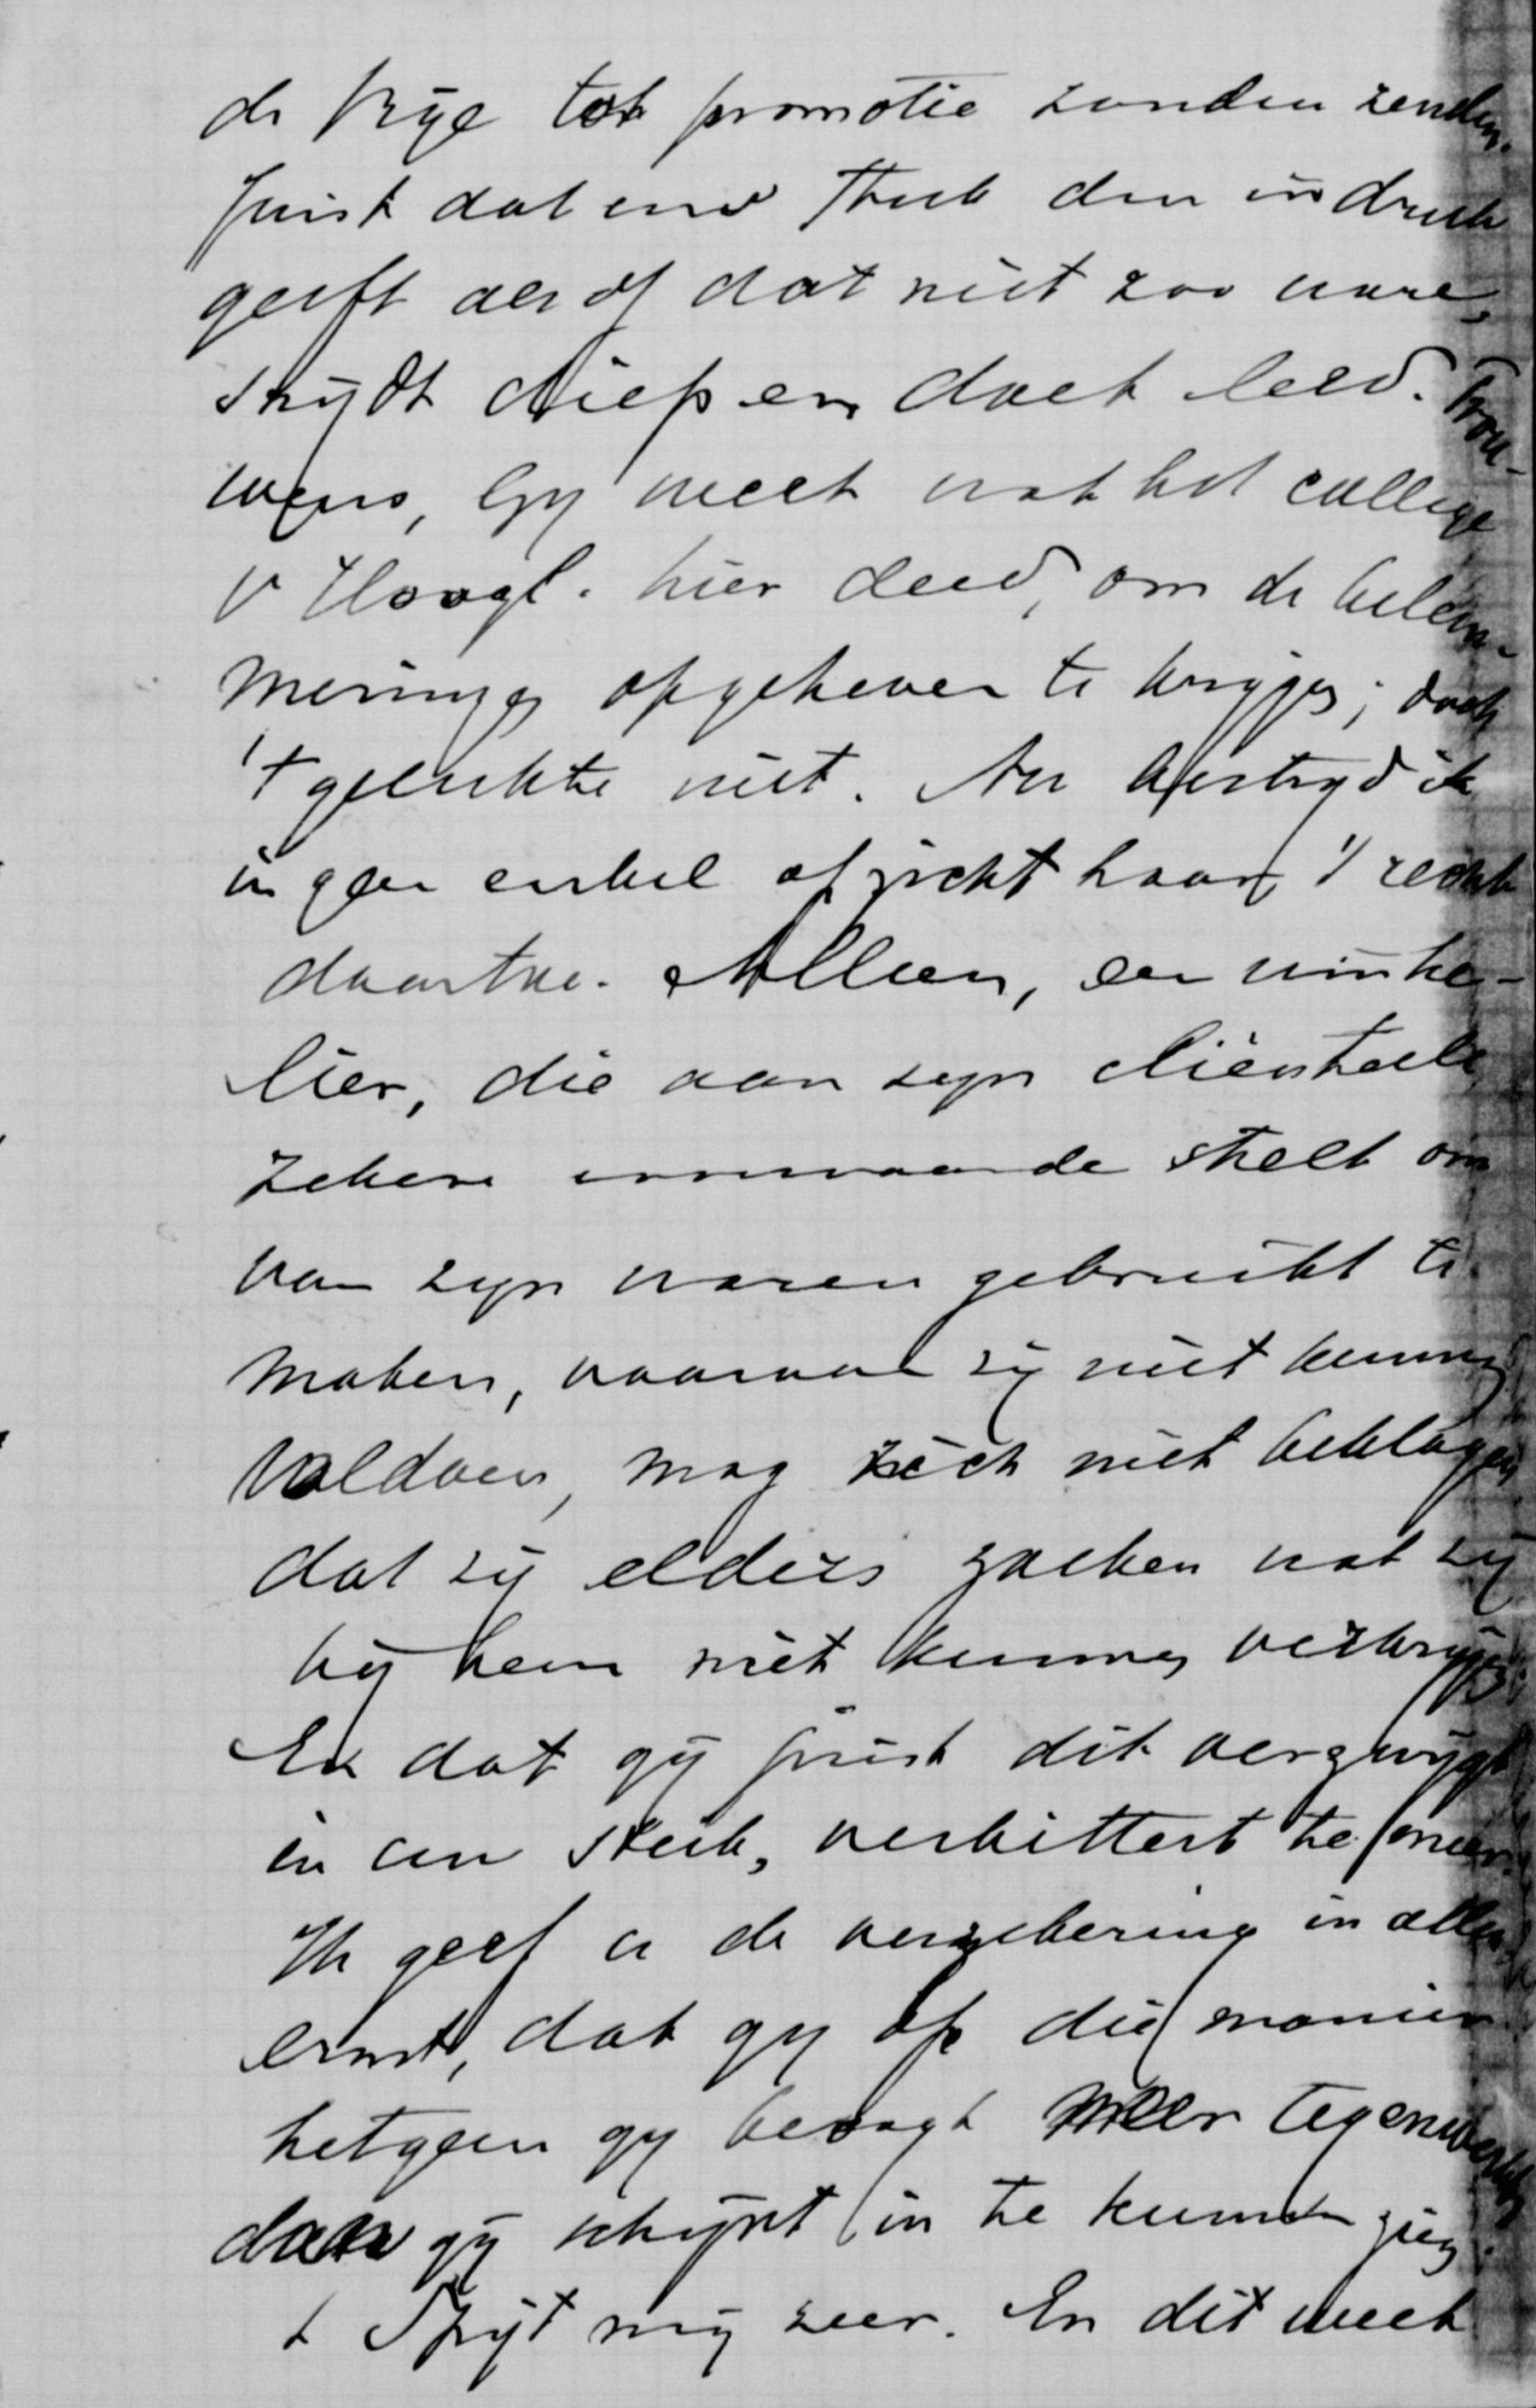 de Vrye tot promotie zonden zenden.
Juist dat uw stuk den indruk
geeft als of dat niet zoo ware,
snydt diep en doet leed. Trou-
wens, Gy weet wat het college
v Hoogl. hier deed, om de belem-
meringen opgeheven te krygen; doch
't gelukte niet. Nu bestryd ik
in geen enkel opzicht haar 't recht
daartoe. Alleen, een winke-
lier, die aan zyn cliënteele
zekere voorwaarde stelt om
van zyn waren gebruikt te
maken, waaraan zij niet kunnen
voldoen, mag zich niet beklagen
dat zij elders zoeken wat zij
bij hem niet kunnen verkrygen.
En dat gij juist dit verzwygt
in uw stuk, verbittert te meer.
Ik geef u de verzekering in allen
ernst, dat gy op die manier
hetgeen gy beoogt meer tegenwerkt
dan gij schijnt in te kunnen zien.
t Spijt mij zeer. En dit weet